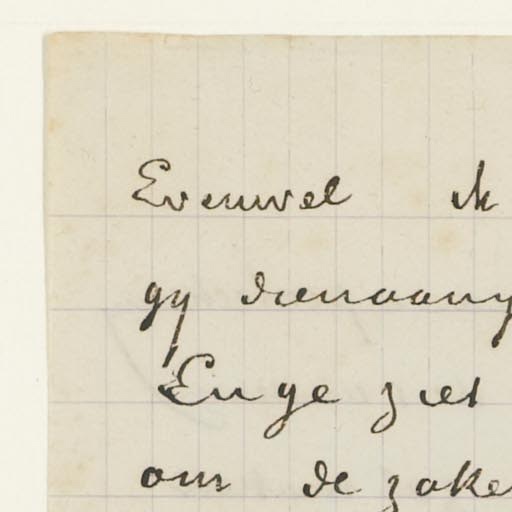 Evenwel ik
gy dienaang
En ge ziet
om de zake